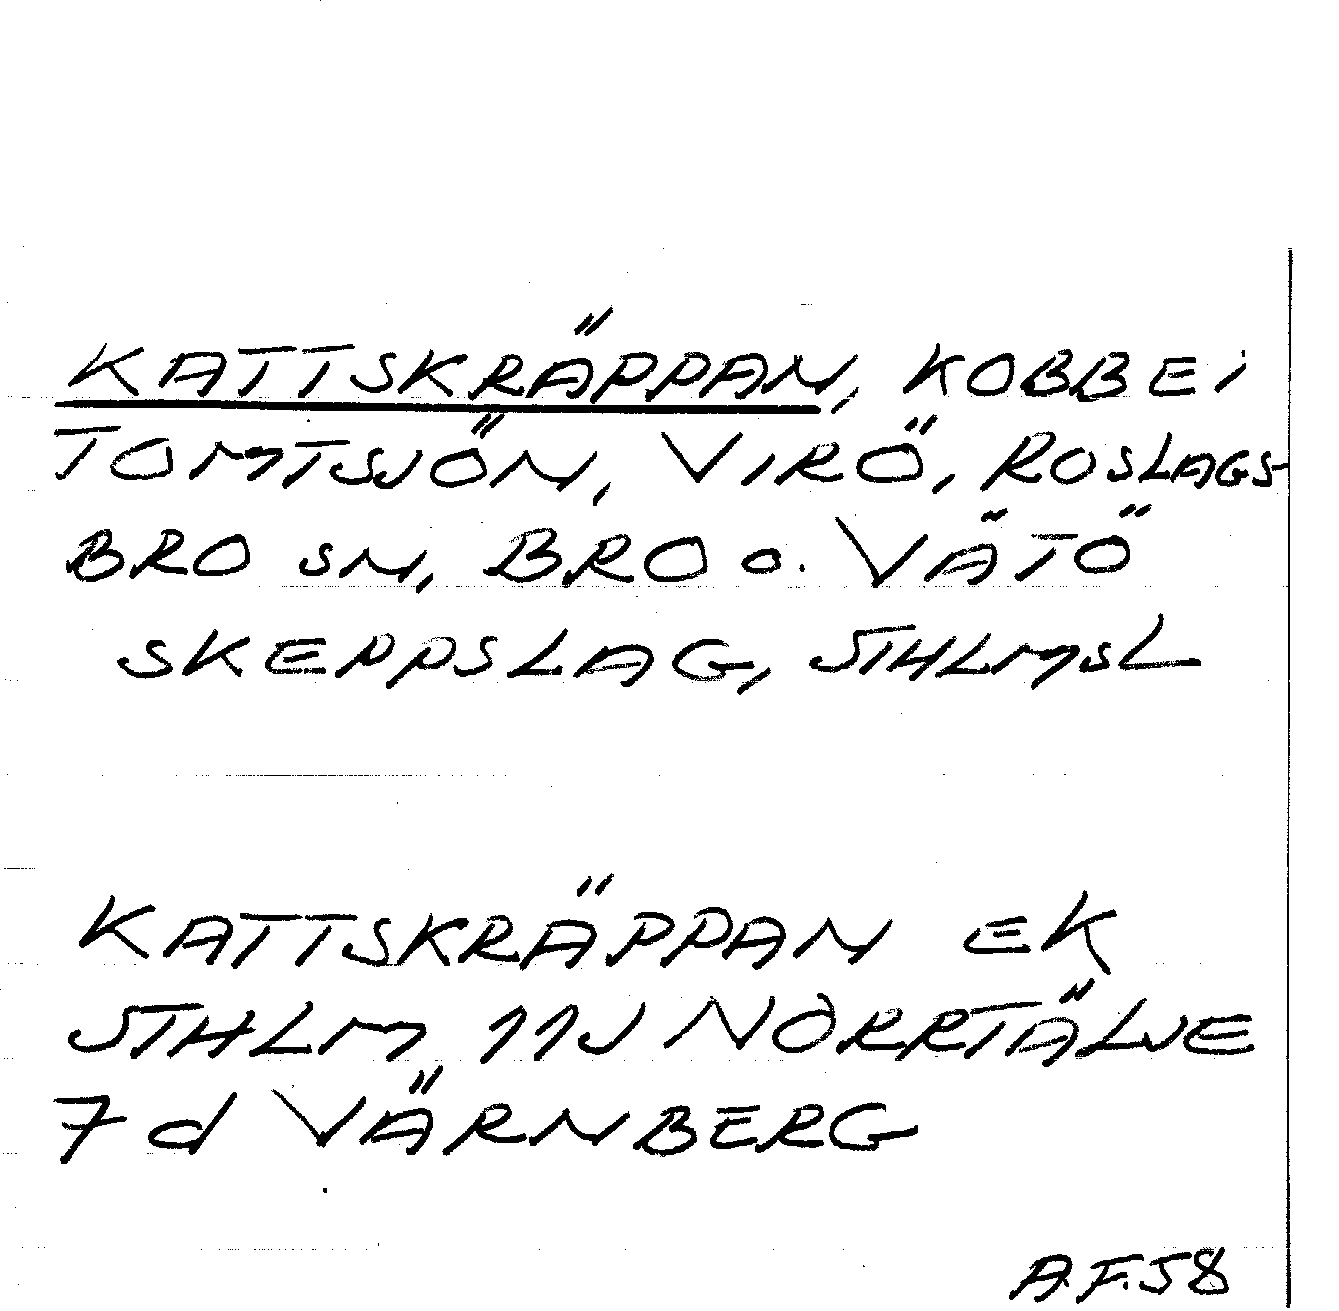 KATTSKRÄPPAN, KOBBE i
TOMTSJÖN, VIRÖ, ROSLAGS-
BRO SN, BRO O. VÄTÖ
SKEPPSLAG, STHLMSL
KATTSKRÄPPAN EK
STHLM 11J NORRTÄLJE
7d VÄRNBERG
A.F.58